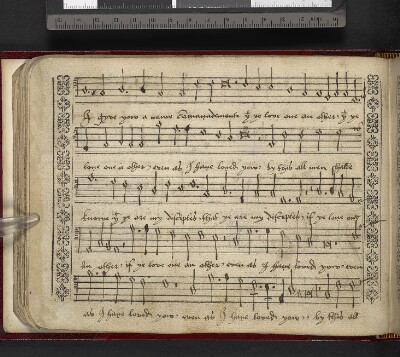 A gyve yow a newe commandemente yͭ ye love one an other yͭ ye
love one a other even as I have loved yow by thys all men shalle
knowe yͭ ye are my disciples thys ye are my disciples if ye love one
an other if ye love one an other even as I have loved yow even
as I have loved yow even as I have loved yow by thys all